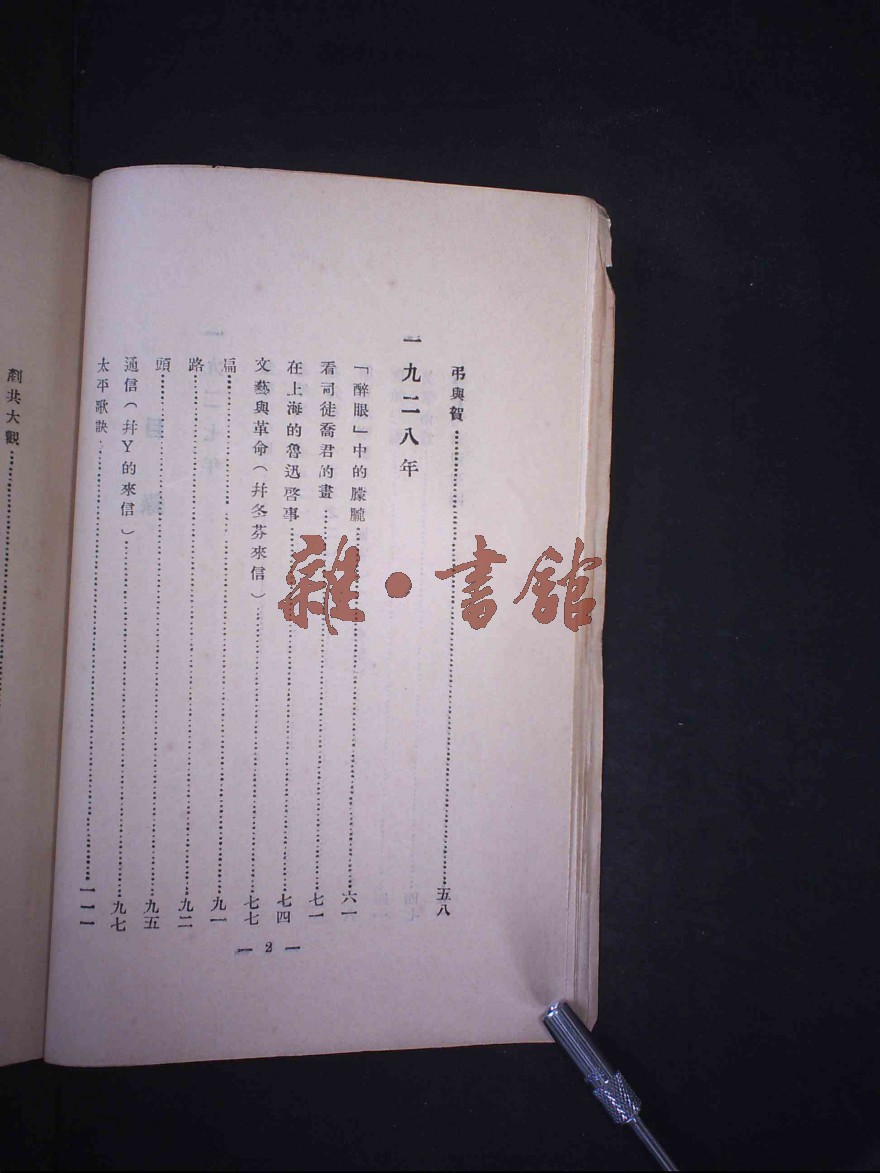 弔與賀…………五八
一九二八年
「醉眼」中的朦朧…………六一
看司徒喬君的畫…………七一
在上海的魯迅啓事…………七四
文藝與革命(幷冬芬來信)…………七七
扁…………九一
路…………九二
頭…………九五
通信(幷Y的來信)…………九七
太平歌訣…………一一一
— 2 —
剷共大觀…………
雜·書館